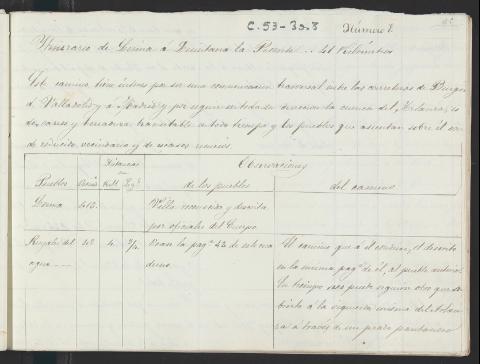 C.53-3o.8
Número 8.
Itinerario de Lerma á Quintana la Puente . . . 28 Kilómetros
Este camino tiene interes por ser una comunicacion trasversal entre las carreteras de Burgos
á Valladolid y á Madrid y por seguir en toda su direccion la cuenca del Arlanza, es
de carros y herradura, transitable en todo tiempo y los pueblos que asientan sobre él son
de reducido vecindario y de escasos recursos.
Distancias
Observaciones
Pueblos
Kil.
Leg.
de los pueblos
del camino
Lerma
413.
Villa reconocida y descrita
por oficiales del Cuerpo
Ruyales del
4.
Vease la pag.ª 43 de este cua
El camino que á él conduce, es descrito
agua
derno.
en la misma pag.ª de él, al pueblo anterior.
En tiempo seco puede seguirse otro que se
á la izquierda misma del Arlan
za á través de un prado pantanoso